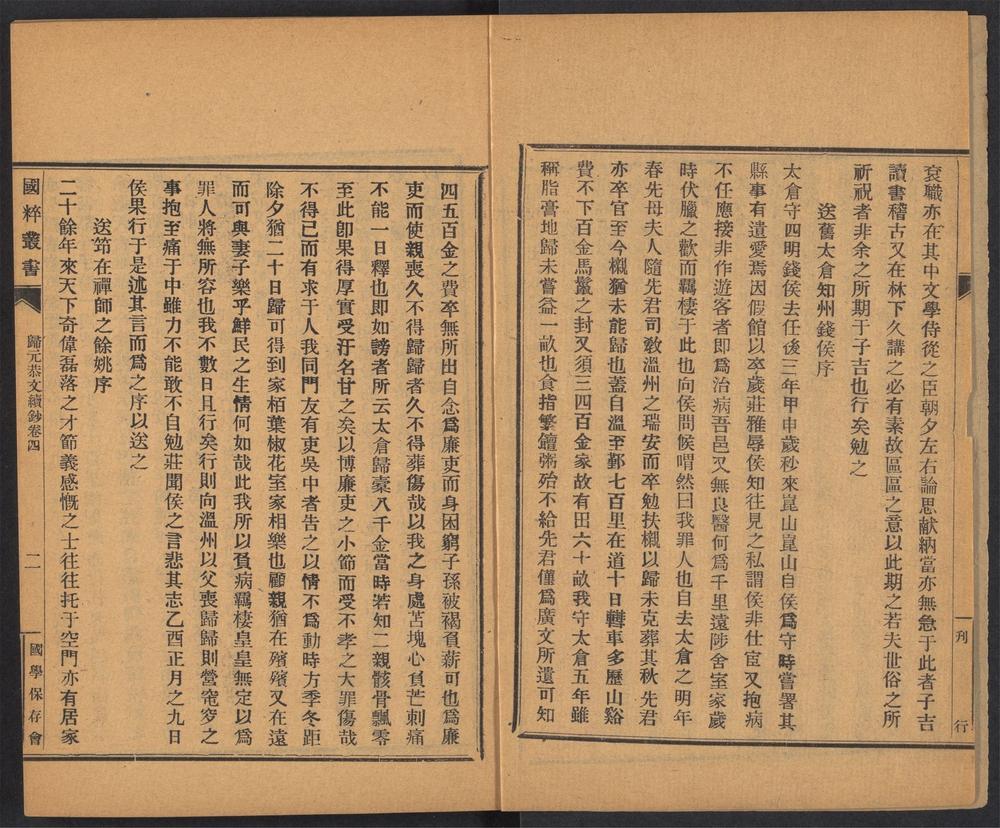 袞職亦在其中文學侍從之臣朝夕左右論思献納當亦無急于此者子吉
讀書稽古又在林下久講之必有素故區區之意以此期之若夫世俗之所
祈祝者非余之所期于子吉也行矣勉之
送舊太倉知州錢侯序
太倉守四明錢侯去任後三年甲申歲秒來崑山崑山自侯爲守時嘗署其
縣事有遺愛焉因假館以卒歲莊雅辱侯知往見之私謂侯非仕宦又抱病
不任應接非作遊客者即爲治病吾邑又無良醫何爲千里遠陟舍室家歲
時伏臘之歡而羈棲于此也向侯問候喟然曰我罪人也自去太倉之明年
春先母夫人隨先君司敎溫州之瑞安而卒勉扶櫬以歸未克葬其秋先君
亦卒官至今櫬猶未能歸也蓋自溫至鄞七百里在道十日轉車多歷山谿
費不下百金馬鬣之封又須三四百金家故有田六十畝我守太倉五年雖
稱脂膏地歸未嘗益一畝也食指繁饘粥殆不給先君僅爲廣文所遺可知
刊
行
四五百金之費卒無所出自念爲廉吏而身困窮子孫被褐負薪可也爲廉
吏而使親喪久不得歸歸者久不得葬傷哉以我之身處苫塊心負芒刺痛
不能一日釋也即如謗者所云太倉歸槖八千金當時若知二親骸骨飄零
至此卽果得厚實受汙名甘之矣以博廉吏之小節而受不孝之大罪傷哉
不得已而有求于人我同門友有吏吳中者告之以情不爲動時方季冬距
除夕猶二十日歸可得到家栢葉椒花室家相樂也顧親猶在殯殯又在遠
而可與妻子樂乎鮮民之生情何如哉此我所以負病羈棲皇皇無定以爲
罪人將無所容也我不數日且行矣行則向溫州以父喪歸歸則營窀穸之
事抱至痛于中雖力不能敢不自勉莊聞侯之言悲其志乙酉正月之九日
侯果行于是述其言而爲之序以送之
送笻在禪師之餘姚序
二十餘年來天下奇偉磊落之才節義感慨之士往往托于空門亦有居家
國粹叢書
歸元恭文續鈔卷四
二
國學保存會